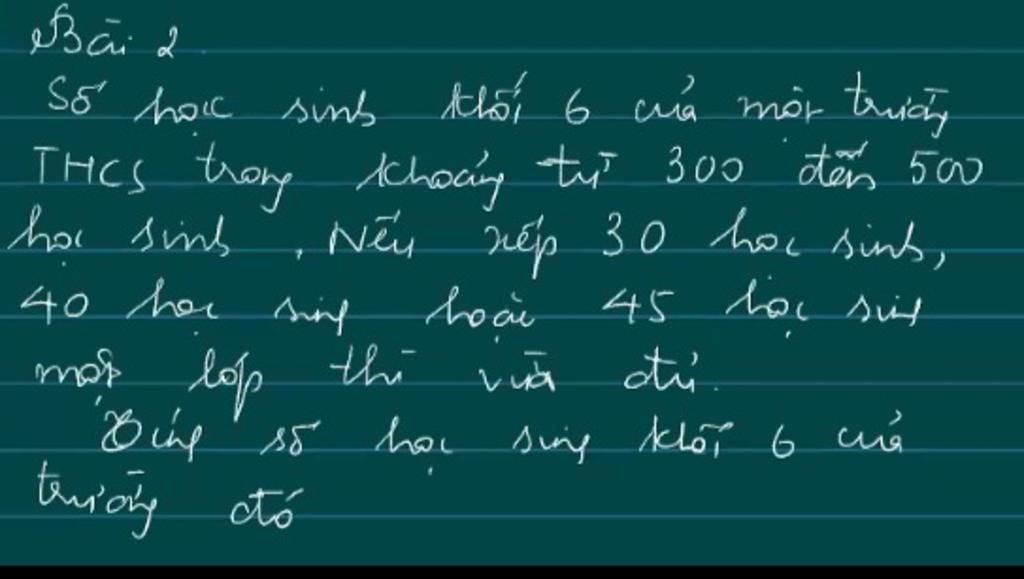 Bài 2
Số học sinh khối 6 của một trường
THCS trong khoảng từ 300 đến 500
học sinh. Nếu xếp 30 học sinh,
40 học sinh hoặc 45 học sinh
một lớp thì vừa đủ.
số học sinh khối 6 của
trường đó